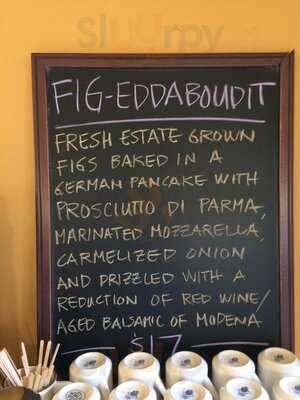 Sluurpy
FIG-EDDABOUDIT
FRESH ESTATE GROWN
FIGS BAKED IN A
GERMAN PANCAKE WITH
PROSCIUTTO DI PARMA,
MARINATED MOZZARELLA,
CARMELIZED ONION
AND DRIZZLED WITH A
REDUCTION OF RED WINE/
AGED BALSAMIC OF MODENA
$17